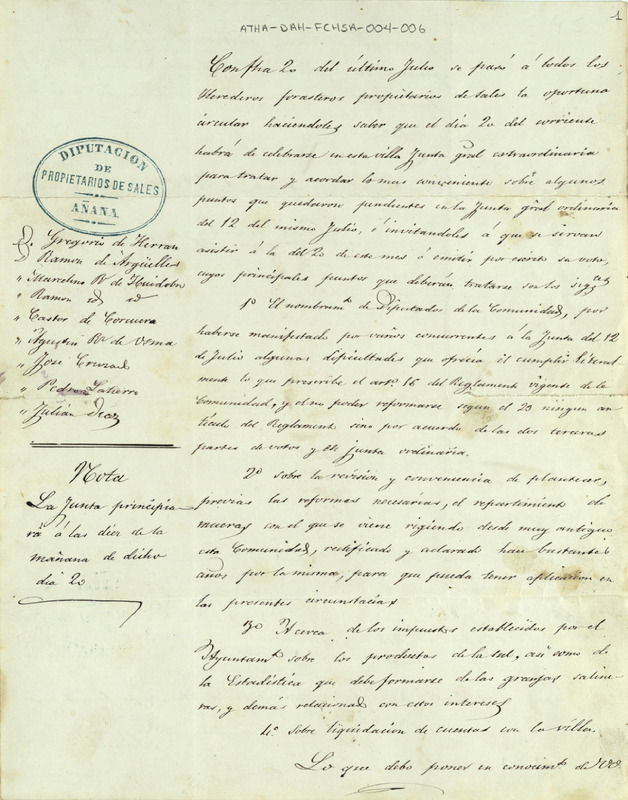 ATHA-DAH-FCHSA-004-006
1
Con fha 20 del último Julio se pasó á todos los
Herederos forasteros propietarios de Sales la oportuna
circular haciendoles saber que el dia 20 del corriente
habrá de celebrarse en esta villa Junta gral extraordinaria
para tratar y acordar lo mas conveniente sobre algunos
puntos que quedaron pendientes en la Junta gral ordinaria
del 12 del mismo Julio, é invitandoles á que se sirvan
asistir á la del 20 de este mes ó emitir por escrito su voto,
cuyos principales puntos que deberán tratarse son los sigtes
1º El nombramto de Diputados de la Comunidad, por
haberse manifestado por varios concurrentes á la Junta del 12
de Julio algunas dificultades que ofrecia el cumplir literal
mente lo que prescribe el arto 16 del Reglamento vigente de la
Comunidad, y el no poder reformarse segun el 23 ningun ar
tículo del Reglamento sino por acuerdo de las dos terceras
partes de votos y en junta ordinaria.
2º Sobre la revision y conveniencia de plantear,
previas las reformas necesarias, el repartimiento de
mueras con el que se viene rigiendo desde muy antiguo
esta Comunidad, rectificado y aclarado hace bastantes
años por la misma, para que pueda tener aplicacion en
las presentes circunstacias
3º Acerca de los impuestos establecidos por el
Ayuntamto sobre los productos de la sal, asi como de
la Estadística que debe formarse de las granjas saline
ras, y demás relacionado con estos intereses
4º Sobre liquidacion de cuentas con la villa.
Lo que debo poner en conocimto de VV.
DIPUTACION
DE
PROPIETARIOS DE SALES
AÑANA
D. Gregorio de Herran
D. Ramon de Argüelles
" Marcelino R. de Huidobro
" Ramon id id
" Castor de Corcuera
" Agustin Rz de
" Jose
" Pedro Latierro
" Julián Diaz
Nota
La Junta principia
rá á las diez de la
mañana de dicho
dia 20